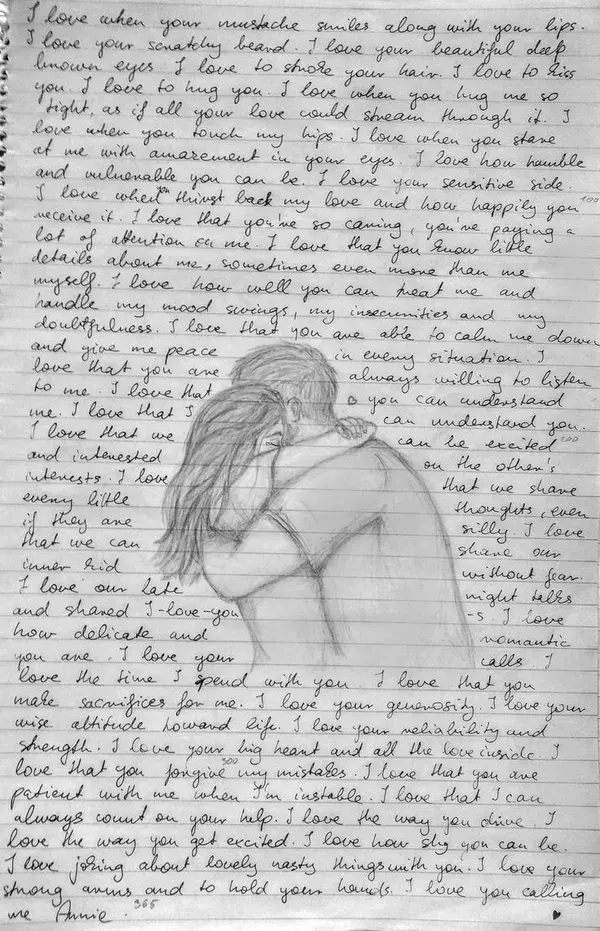 I love when your mustache smiles along with your lips.
I love your scratchy beard. I love your beautiful deep
brown eyes. I love to stroke your hair. I love to kiss
you. I love to hug you. I love when you hug me so
tight, as if all your love could stream through it. I
love when you touch my hips. I love when you stare
at me with amazement in your eyes. I love how humble
and vulnerable you can be. I love your sensitive side.
I love when you thirst back my love and how happily you 100
receive it. I love that you're so caring, you're paying a
lot of attention on me. I love that you know little
details about me, sometimes even more than me
myself. I love how well you can treat me and
handle my mood swings, my insecurities and my
doubtfulness. I love that you are able to calm me down
and give me peace in every situation. I
love that you are always willing to listen
to me. I love that you can understand
me. I love that I can understand you.
I love that we can be excited 200
and interested on the other's
interests. I love that we share
every little thoughts, even
if they are silly. I love
that we can share our
inner kid without fear.
I love our late night talks
and shared I-love-you -s. I love
how delicate and romantic
you are. I love your calls. I
love the time I spend with you. I love that you
make sacrifices for me. I love your generosity. I love your
wise attitude howard life. I love your reliability and
strength. I love your big heart and all the love inside. I
love that you forgive 300 my mistakes. I love that you are
patient with me when I'm instable. I love that I can
always count on your help. I love the way you drive. I
love the way you get excited. I love how shy you can be.
I love joking about lovely nasty things with you. I love your
strong arms and to hold your hands. I love you calling
me Annie. 365